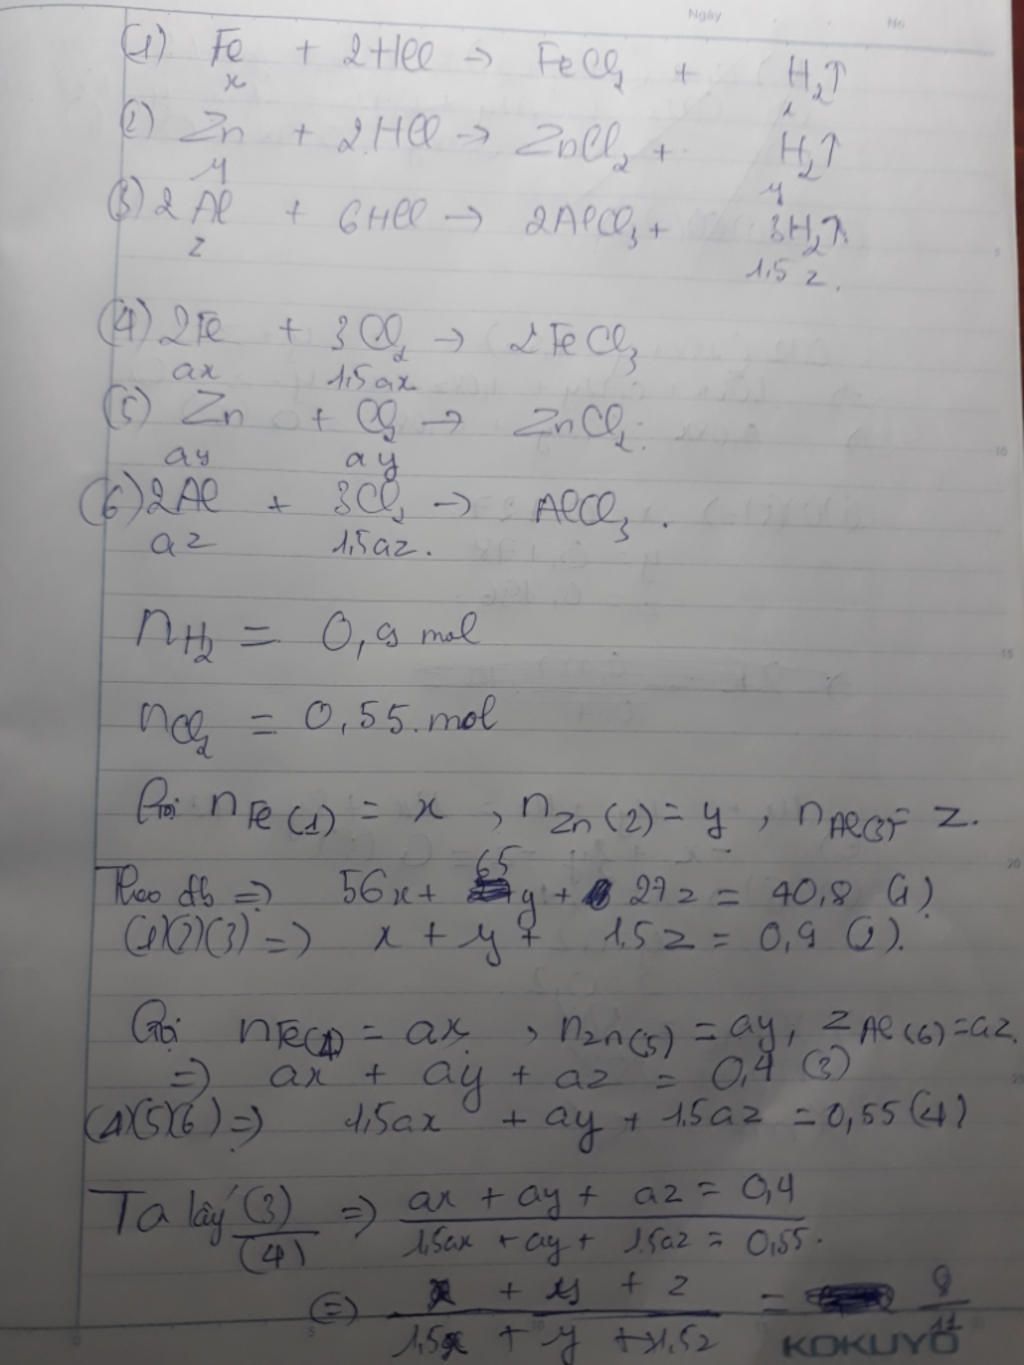 Ngày No
(1) Fe + 2HCl → FeCl2 + H2↑
x x
(2) Zn + 2HCl → ZnCl2 + H2↑
y y
(3) 2Al + 6HCl → 2AlCl3 + 3H2↑
z 1,5 z.
(4) 2Fe + 3Cl2 → 2FeCl3
ax 1,5ax
(5) Zn + Cl2 → ZnCl2.
ay ay
(6) 2Al + 3Cl2 → AlCl3.
az 1,5az.
nH2 = 0,9 mol
nCl2 = 0,55.mol
Gọi nFe(1) = x, nZn(2) = y, nAl(3) = z.
Theo đb => 56x + 65y + 27z = 40,8 (1)
(1)(2)(3) => x + y + 1,5z = 0,9 (2).
Gọi nFe(4) = ax, nZn(5) = ay, zAl(6) = az.
=> ax + ay + az = 0,4 (3)
(4)(5)(6) => 1,5ax + ay + 1,5az = 0,55 (4)
Ta lấy (3)/(4) => ax + ay + az = 0,4
1,5ax + ay + 1,5az = 0,55.
(=) x + y + z / 1,5x + y + 1,5z = 8/11
KOKUYO